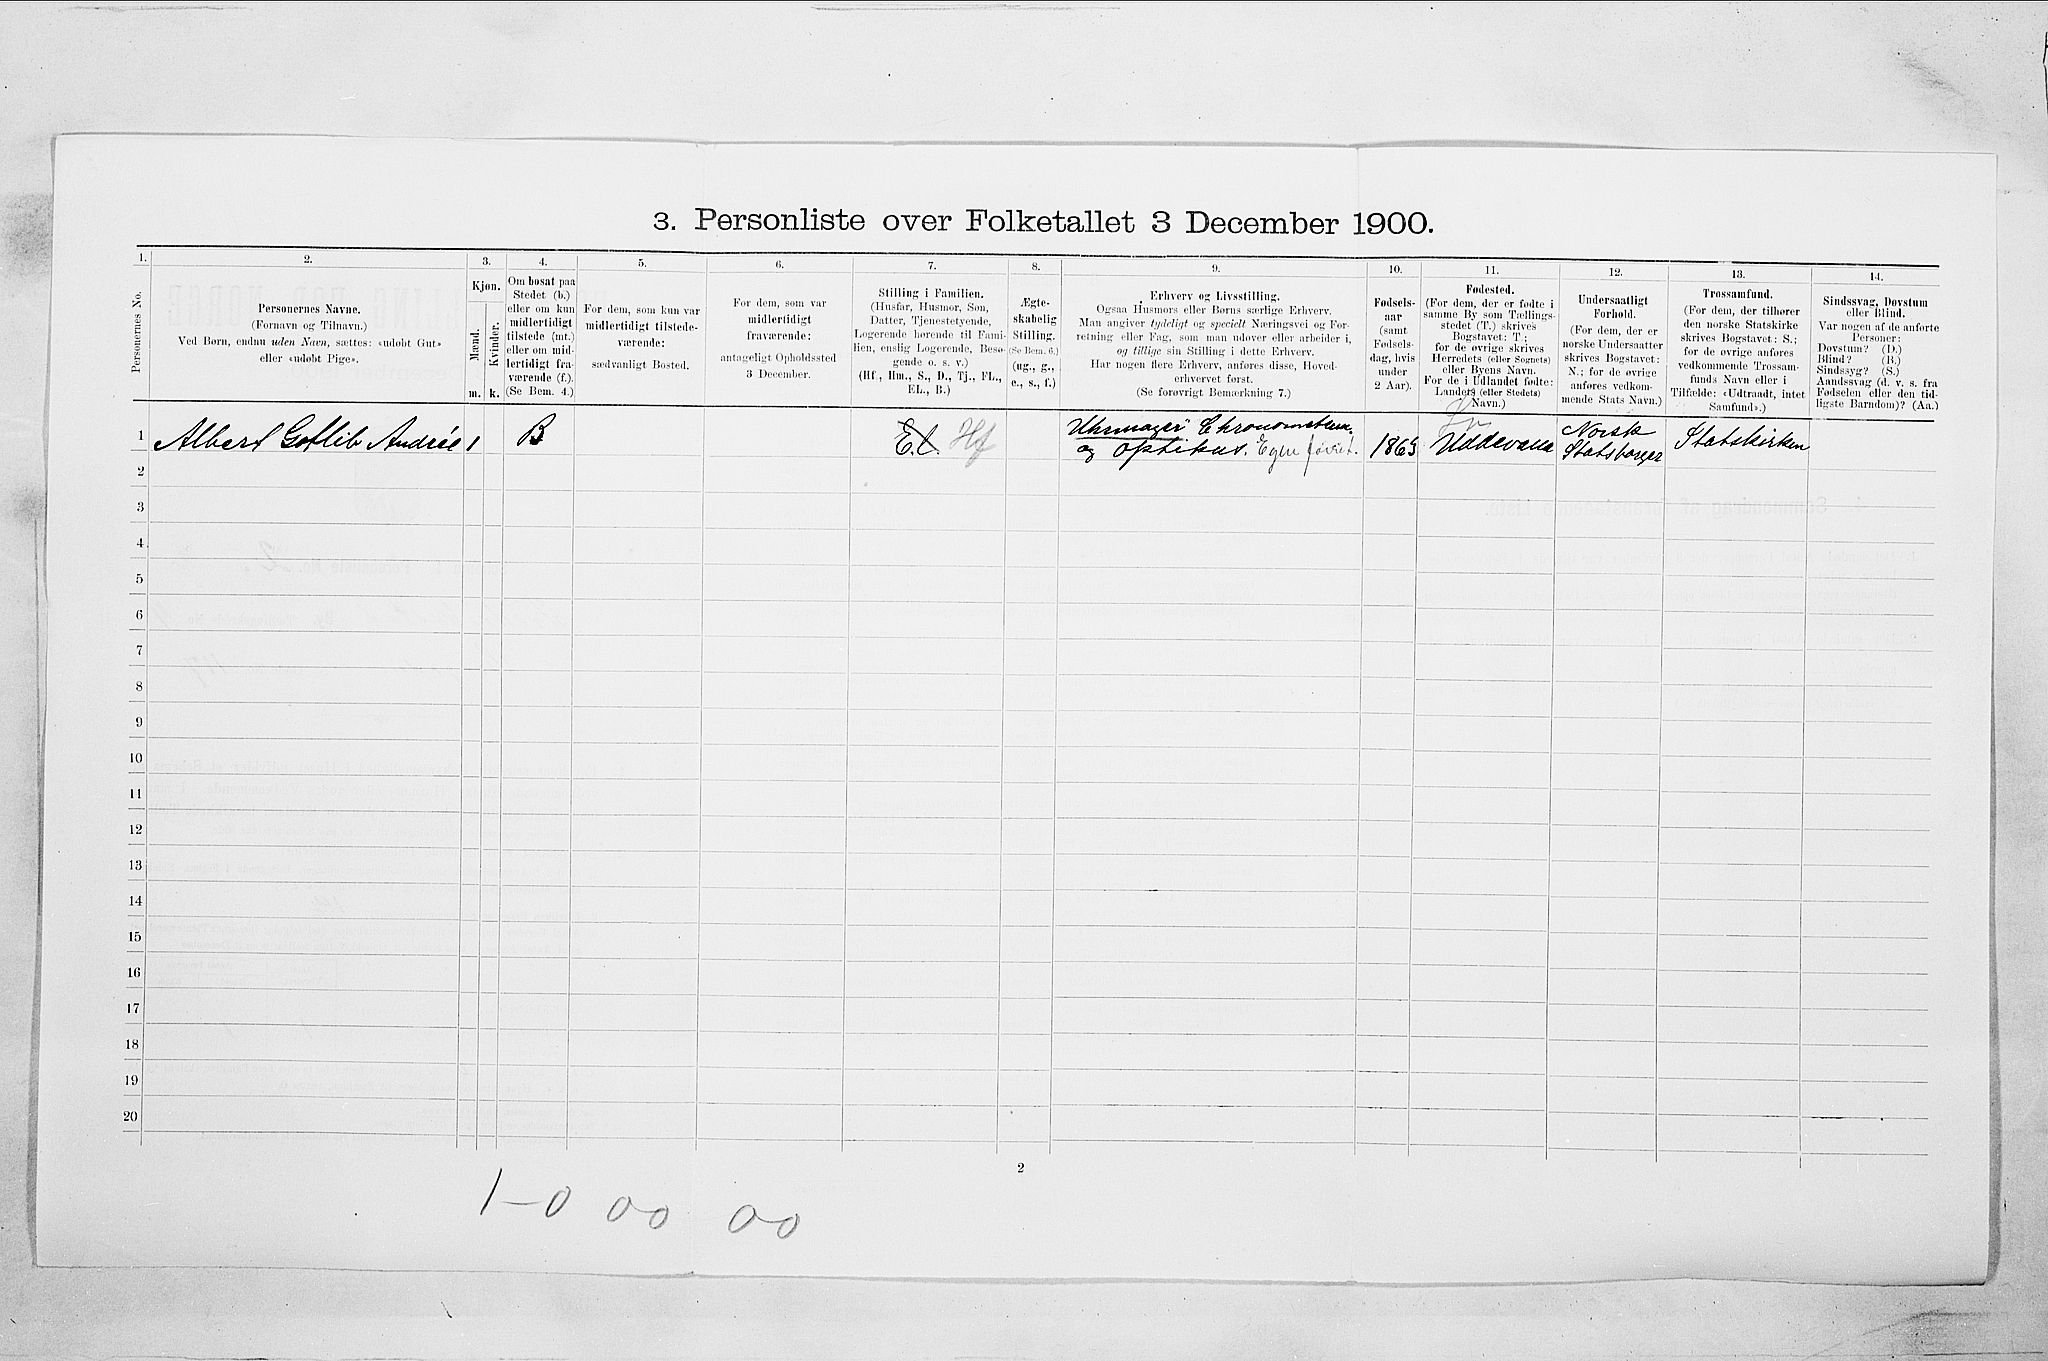 3. Personliste over Folketallet 3 December 1900.
1. 2. 3. 4. 5. 6. 7. 8. 9. 10. 11. 12. 13. 14.
Personernes No.
Personernes Navne.
(Fornavn og Tilnavn.)
Ved Børn, endnu uden Navn, sættes: «udøbt Gut»
eller «udøbt Pige».
Kjøn.
Mænd.
Kvinder.
m. k.
Om bosat paa
Stedet (b.)
eller om kun
midlertidigt
tilstede (mt.)
eller om mid-
lertidigt fra-
værende (f.).
(Se Bem. 4.)
For dem, som kun var
midlertidigt tilstede-
værende:
sædvanligt Bosted.
For dem, som var
midlertidigt
fraværende:
antageligt Opholdssted
3 December.
Stilling i Familien.
(Husfar, Husmor, Søn,
Datter, Tjenestetyende,
Logerende hørende til Fami-
lien, enslig Logerende, Besø-
gende o. s. v.)
(Hf., Hm., S., D., Tj., FL.,
EL., B.)
Ægte-
skabelig
Stilling.
(Se Bem. 6.)
(ug., g.,
e., s., f.)
Erhverv og Livsstilling.
Ogsaa Husmors eller Børns særlige Erhverv.
Man angiver tydeligt og specielt Næringsvei og For-
retning eller Fag, som man udøver eller arbeider i,
og tillige sin Stilling i dette Erhverv.
Har nogen flere Erhverv, anføres disse, Hoved-
erhvervet først.
(Se forøvrigt Bemærkning 7.)
Fødsels-
aar
(samt
Fødsels-
dag, hvis
under
2 Aar).
Fødested.
(For dem, der er fødte i
samme By som Tællings-
stedet (T.) skrives
Bogstavet: T;
for de øvrige skrives
Herredets (eller Sognets)
eller Byens Navn.
For de i Udlandet fødte:
Landets (eller Stedets)
Navn.)
Undersaatligt
Forhold.
(For dem, der er
norske Undersaatter
skrives Bogstavet:
N.; for de øvrige
anføres vedkom-
mende Stats Navn.)
Trossamfund.
(For dem, der tilhører
den norske Statskirke
skrives Bogstavet: S.;
for de øvrige anføres
vedkommende Trossam-
funds Navn eller i
Tilfælde: «Udtraadt, intet
Samfund».)
Sindssvag, Døvstum
eller Blind.
Var nogen af de anførte
Personer:
Døvstum? (D.)
Blind? (B.)
Sindssyg? (S.)
Aandssvag (d. v. s. fra
Fødselen eller den tid-
ligste Barndom)? (Aa.)
1 Albert Gotlib Andrée 1 B E.l. Hf Uhrmager Chronometerm. og optikus. Egen 1863 Uddevalla Norsk Statsborger Statskirken
2
3
4
5
6
7
8
9
10
11
12
13
14
15
16
17
18
19
20
2
1-0 00 00